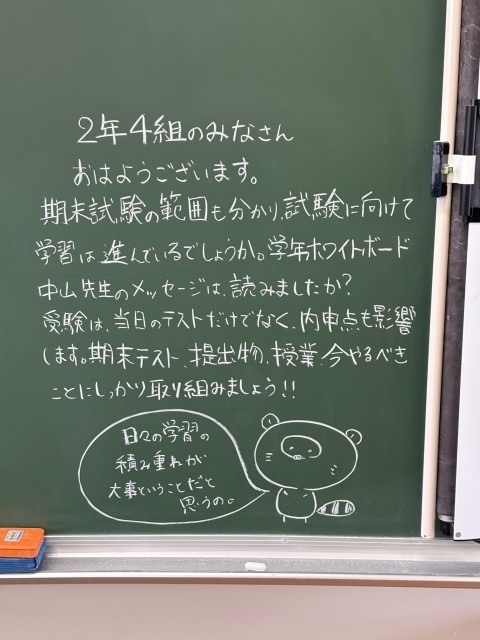 2年4組のみなさん
おはようございます。
期末試験の範囲も分かり、試験に向けて
学習は進んでいるでしょうか。学年ホワイトボード
中山先生のメッセージは、読みましたか?
受験は、当日のテストだけでなく、内申点も影響
します。期末テスト、提出物、授業、今やるべき
ことにしっかり取り組みましょう!!
日々の学習の
積み重ねが
大事ということだと
思うの。